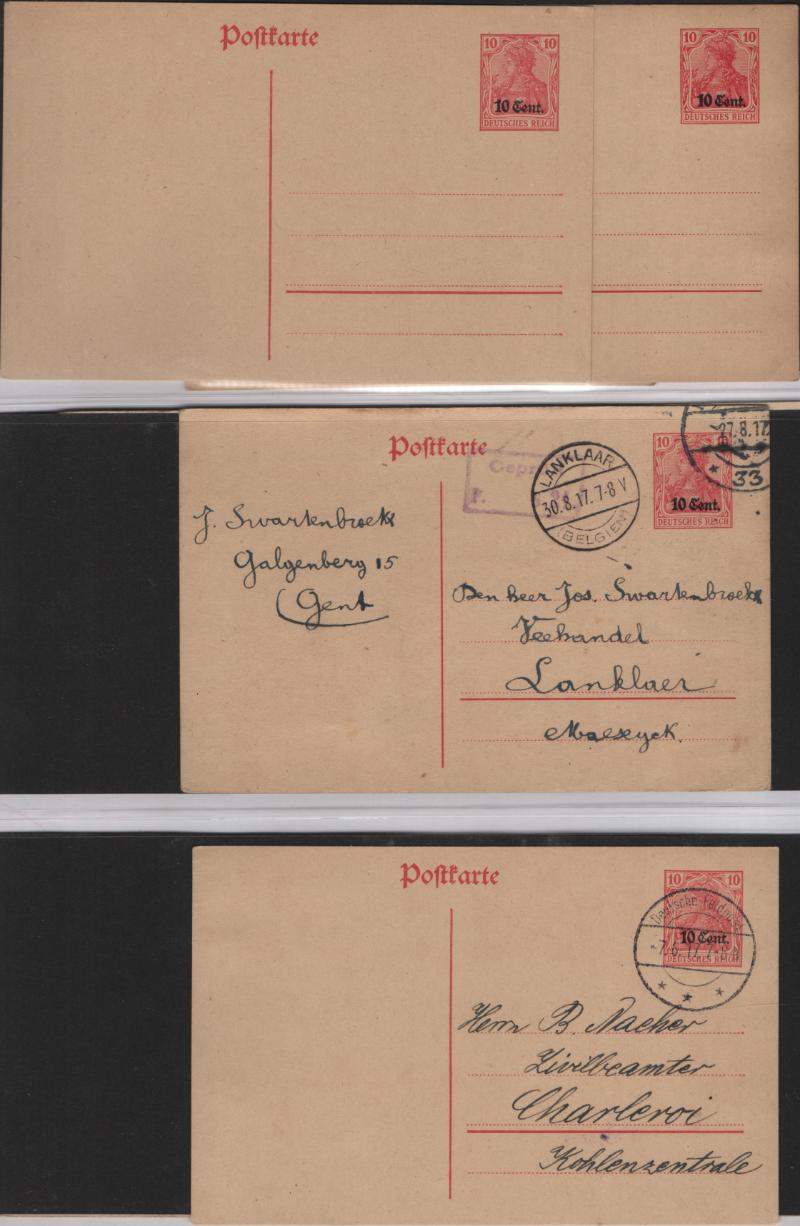 Postkarte
10 10
10 Cent.
DEUTSCHES REICH
10 10
10 Cent.
DEUTSCHES REICH
Postkarte
Gepr
P.
LANKLAAR
30.8.17.7-8 V
(BELGIEN)
27.8.17.
* 33
10 10
10 Cent.
DEUTSCHES REICH
J. Swartenbroekx
Galgenberg 15
Gent
Den heer Jos. Swartenbroekx
Veehandel
Lanklaer
Maeseyck.
Postkarte
10 10
Deutsche Feldpost
10 Cent.
DEUTSCHES REICH
* * *
Herrn B. Nacher
Zivilbeamter
Charleroi
Kohlenzentrale